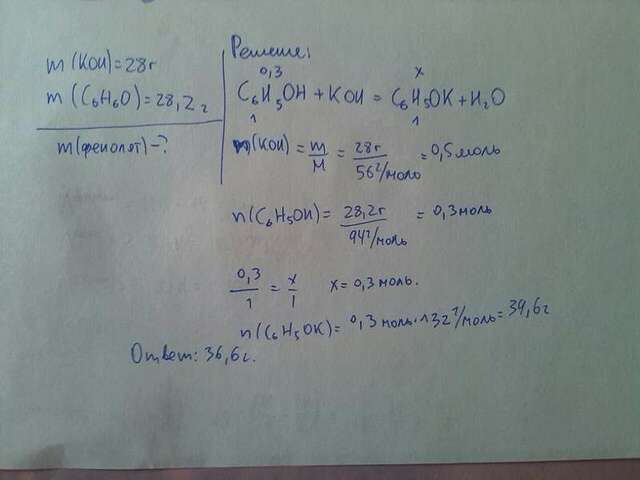 m(KOH)=28г
m(C₆H₆O)=28,2г
m(фенолят)-?
Решение:
0,3 x
C₆H₅OH + KOH = C₆H₅OK + H₂O
1 1
n(KOH) = m/M = 28г/56г/моль = 0,5моль
n(C₆H₅OH) = 28,2г/94г/моль = 0,3моль
0,3/1 = x/1 x=0,3моль.
n(C₆H₅OK) = 0,3моль·132г/моль=39,6г
Ответ: 36,6г.